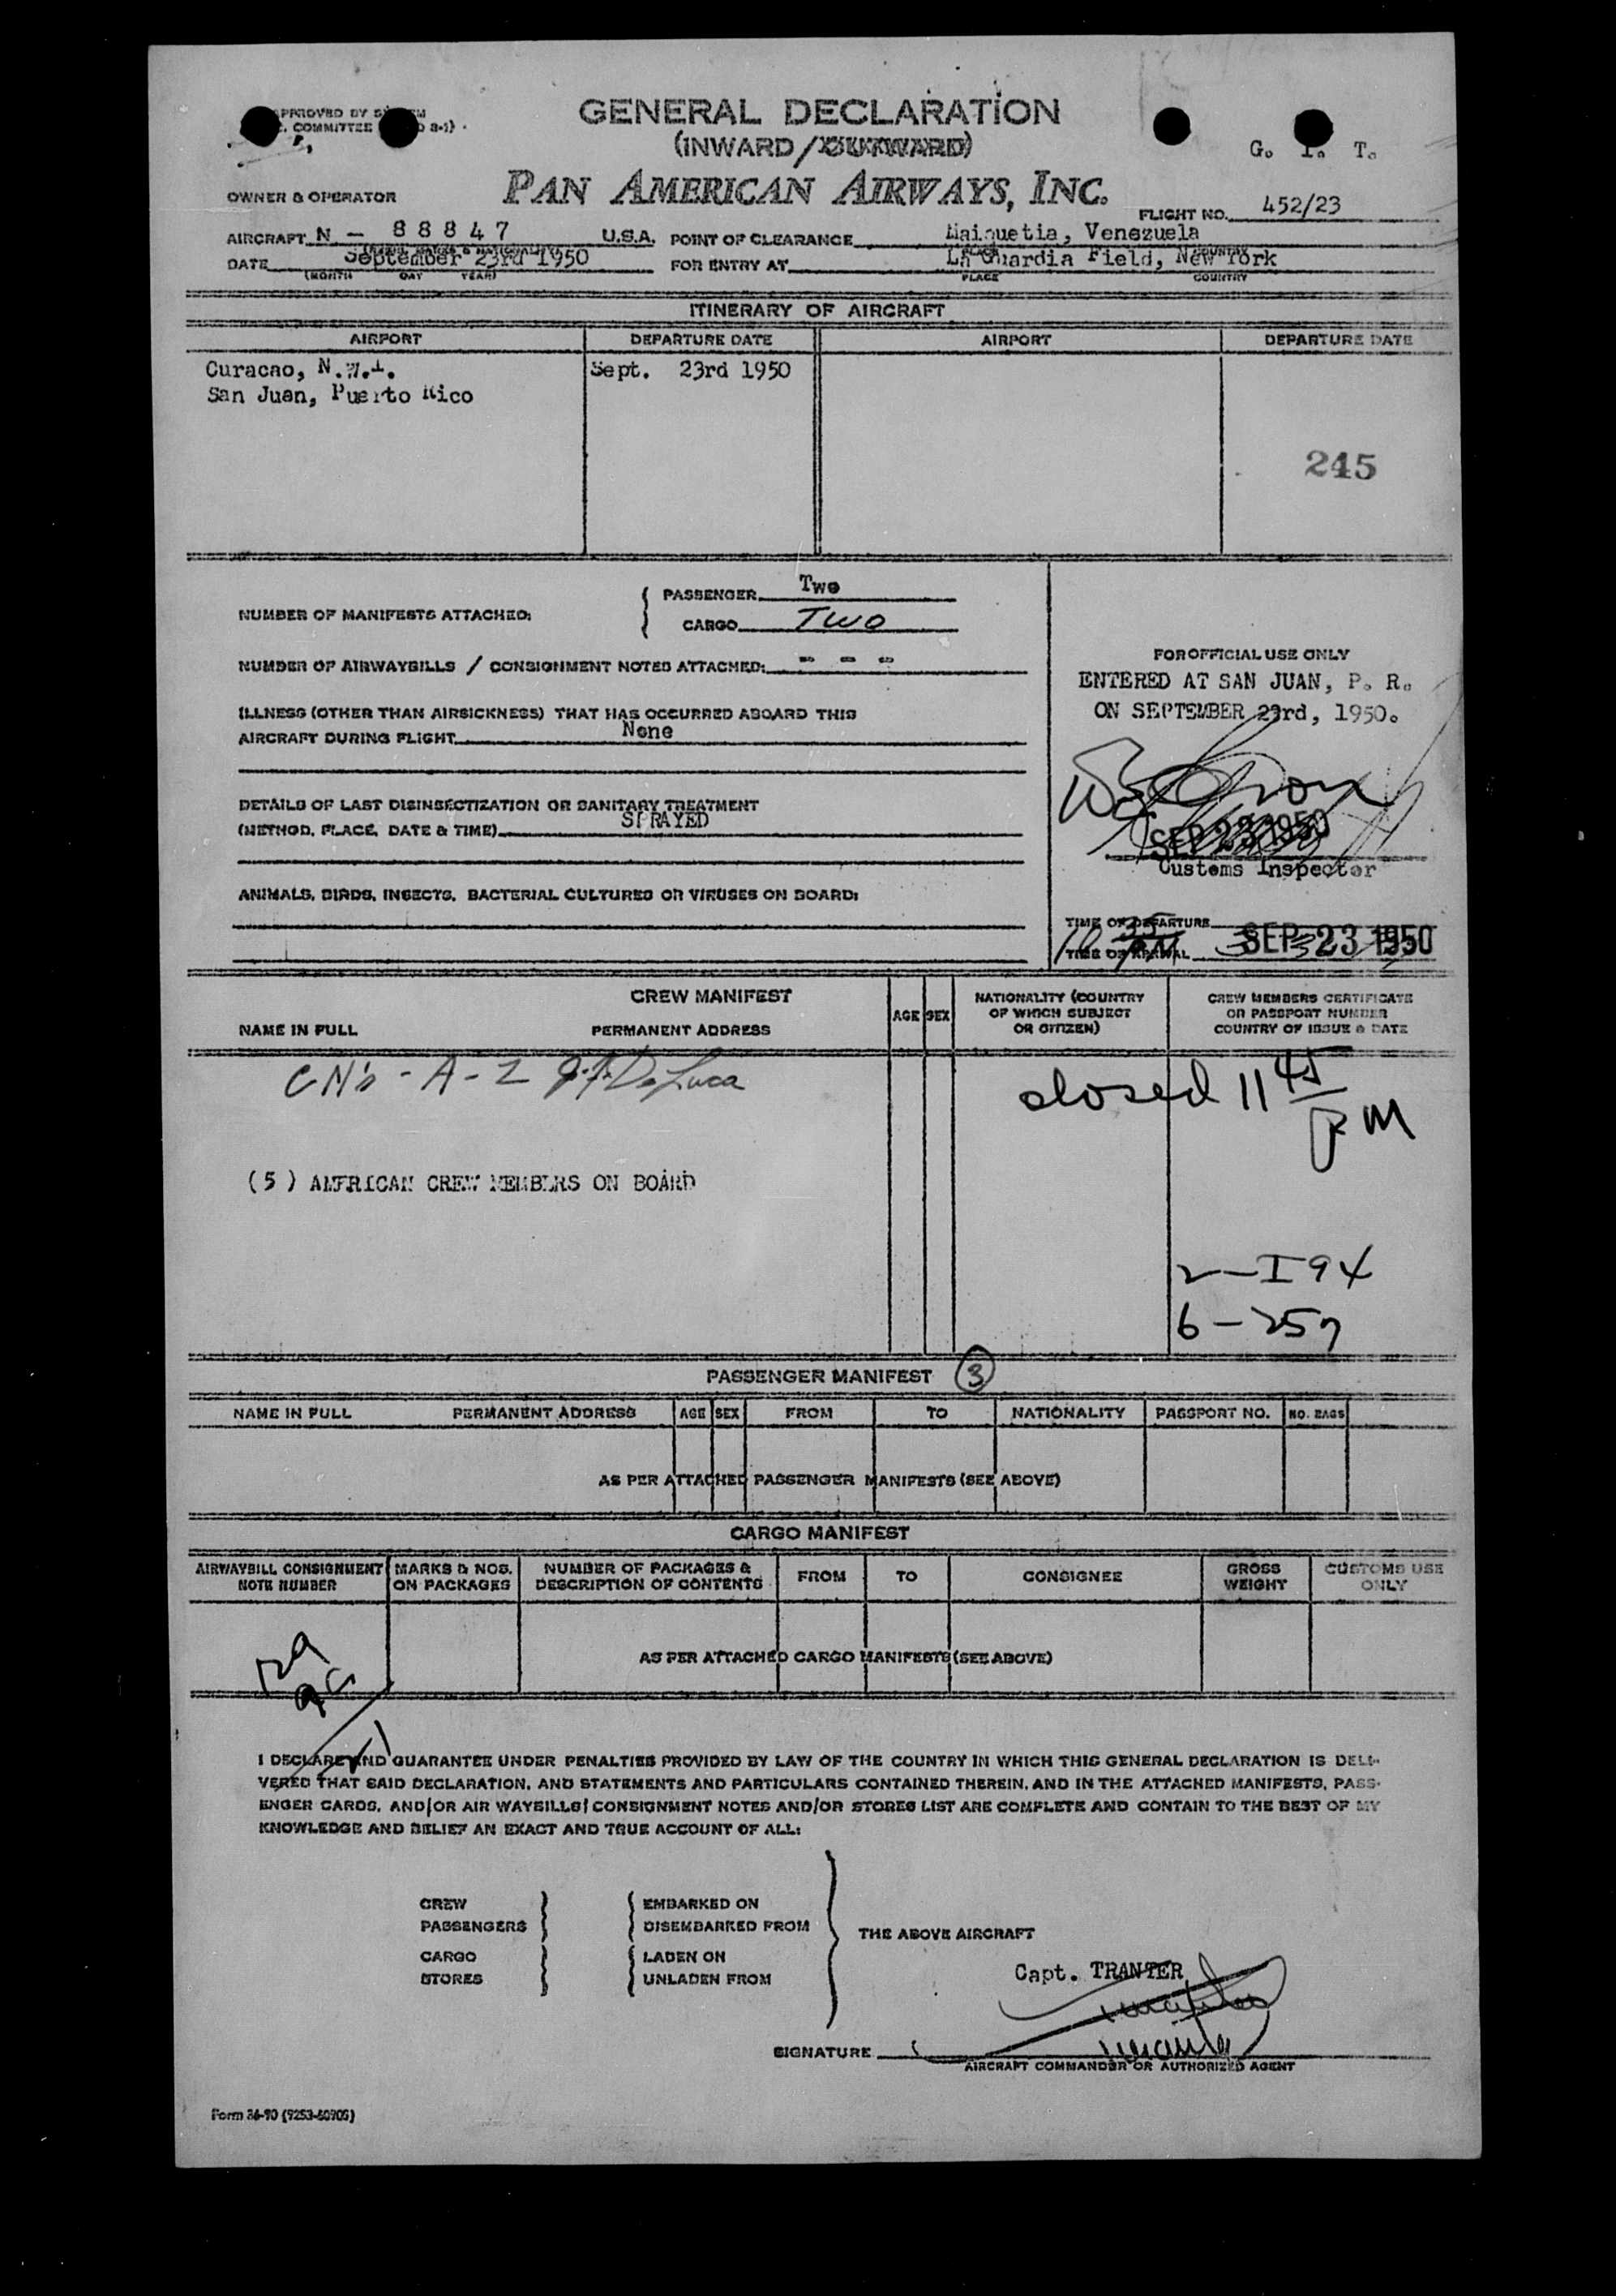 APPROVED BY
COMMITTEE
GENERAL DECLARATION
(INWARD/OUTWARD)
G. I. T.
OWNER & OPERATOR
PAN AMERICAN AIRWAYS, INC.
FLIGHT NO. 452/23
AIRCRAFT N - 88847 U.S.A. POINT OF CLEARANCE Maiquetia, Venezuela
DATE September 23rd 1950 FOR ENTRY AT La Guardia Field, New York
(MONTH DAY YEAR) PLACE COUNTRY
ITINERARY OF AIRCRAFT
AIRPORT DEPARTURE DATE AIRPORT DEPARTURE DATE
Curacao, N.W.I. Sept. 23rd 1950
San Juan, Puerto Rico
245
NUMBER OF MANIFESTS ATTACHED: PASSENGER Two
CARGO Two
NUMBER OF AIRWAYBILLS / CONSIGNMENT NOTES ATTACHED: - - -
ILLNESS (OTHER THAN AIRSICKNESS) THAT HAS OCCURRED ABOARD THIS
AIRCRAFT DURING FLIGHT None
DETAILS OF LAST DISINSECTIZATION OR SANITARY TREATMENT
(METHOD, PLACE, DATE & TIME) SPRAYED
ANIMALS, BIRDS, INSECTS, BACTERIAL CULTURES OR VIRUSES ON BOARD:
FOR OFFICIAL USE ONLY
ENTERED AT SAN JUAN, P. R.
ON SEPTEMBER 23rd, 1950.
SEP 23 1950
Customs Inspector
TIME OF DEPARTURE
10 35 PM SEP 23 1950
TIME OF ARRIVAL
CREW MANIFEST
NAME IN FULL PERMANENT ADDRESS AGE SEX NATIONALITY (COUNTRY OF WHICH SUBJECT OR CITIZEN) CREW MEMBERS CERTIFICATE OR PASSPORT NUMBER COUNTRY OF ISSUE & DATE
De Luca
closed 11 45
PM
(5) AMERICAN CREW MEMBERS ON BOARD
2-I94
6-257
PASSENGER MANIFEST 3
NAME IN FULL PERMANENT ADDRESS AGE SEX FROM TO NATIONALITY PASSPORT NO. NO. BAGS
AS PER ATTACHED PASSENGER MANIFESTS (SEE ABOVE)
CARGO MANIFEST
AIRWAYBILL CONSIGNMENT NOTE NUMBER MARKS & NOS. ON PACKAGES NUMBER OF PACKAGES & DESCRIPTION OF CONTENTS FROM TO CONSIGNEE GROSS WEIGHT CUSTOMS USE ONLY
AS PER ATTACHED CARGO MANIFESTS (SEE ABOVE)
I DECLARE AND GUARANTEE UNDER PENALTIES PROVIDED BY LAW OF THE COUNTRY IN WHICH THIS GENERAL DECLARATION IS DELI-
VERED THAT SAID DECLARATION, AND STATEMENTS AND PARTICULARS CONTAINED THEREIN, AND IN THE ATTACHED MANIFESTS, PASS-
ENGER CARDS, AND/OR AIR WAYBILLS/CONSIGNMENT NOTES AND/OR STORES LIST ARE COMPLETE AND CONTAIN TO THE BEST OF MY
KNOWLEDGE AND BELIEF AN EXACT AND TRUE ACCOUNT OF ALL:
CREW EMBARKED ON
PASSENGERS DISEMBARKED FROM
THE ABOVE AIRCRAFT
CARGO LADEN ON
STORES UNLADEN FROM
Capt. TRANTER
SIGNATURE
AIRCRAFT COMMANDER OR AUTHORIZED AGENT
Form 36-90 (9253-60905)